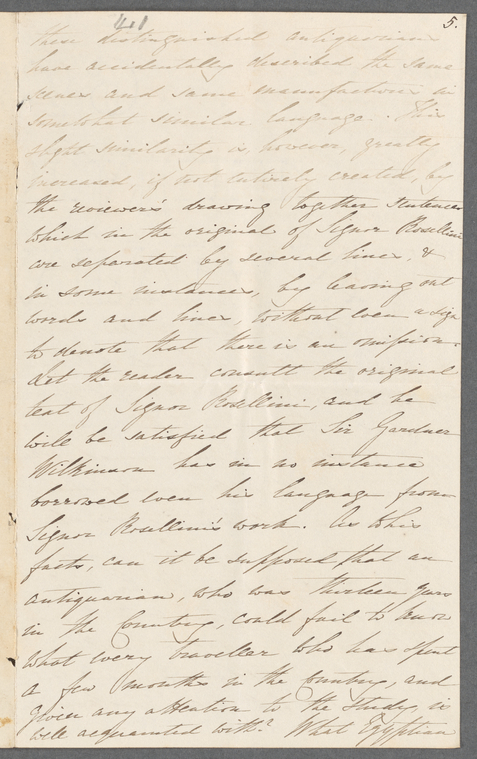 411
5.
these distinguished antiquarians
have accidentally described the same
scenes and same manufactures in
somewhat similar language. This
slight similarity is, however, greatly
increased, if not entirely created, by
the reviewer's drawing together sentences
which in the original of Signor Rosellini
are separated by several lines, &
in some instances, by leaving out
words and lines, without even a sign
to denote that there is an omission.
Let the reader consult the original
text of Signor Rosellini, and he
will be satisfied that Sir Gardner
Wilkinson has in no instance
borrowed even his language from
Signor Rosellini's work. As to his
facts, can it be supposed, that an
antiquarian, who was thirteen years
in the Country, could fail to know
what every traveller who has spent
a few months in the Country, and
given any attention to the study, is
well acquainted with? What Egyptian